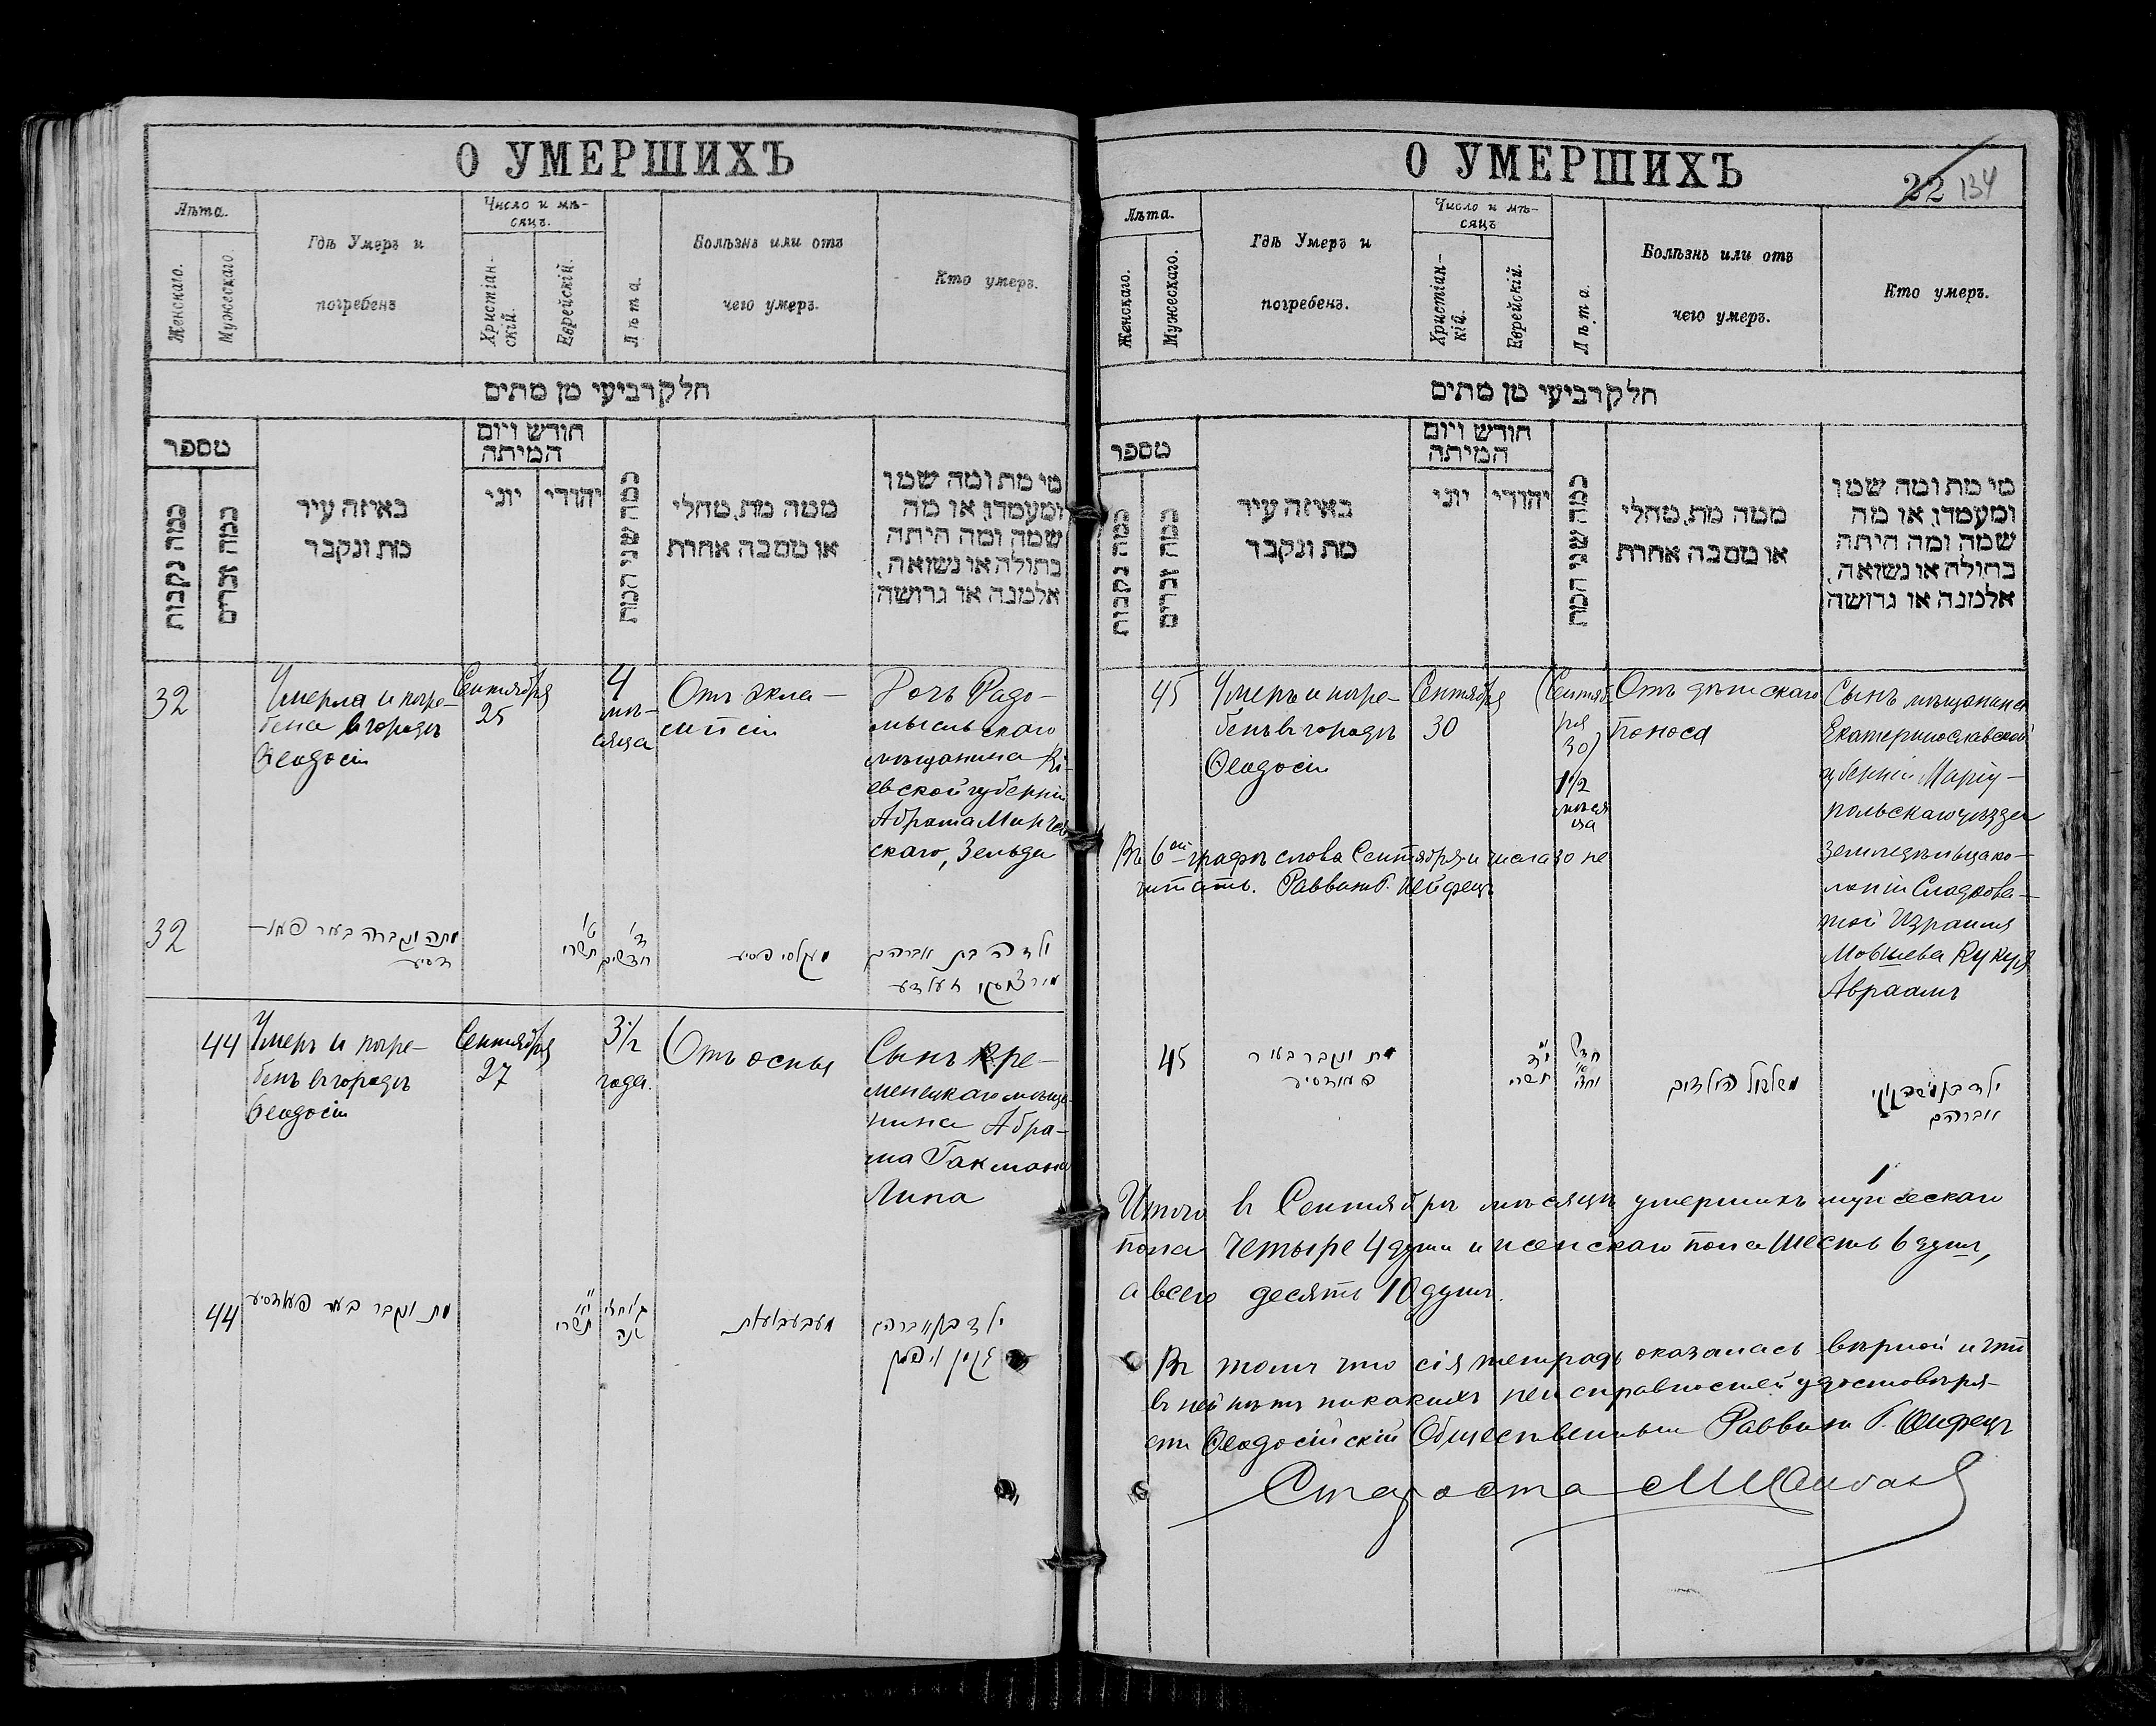 О УМЕРШИХЪ
Лѣта.
Женскаго.
Мужескаго
Гдѣ Умеръ и
погребенъ
Число и мѣ-
сяцъ.
Христіан-
скій.
Еврейскій.
Лѣта.
Болѣзнь или отъ
чего умеръ.
Кто умеръ.
חלק רביעי מן מתים
מספר
כמה נקבות
כמה זכרים
באיזה עיר
מת ונקבר
חודש ויום
המיתה
יוני
יהודי
כמה שני המת
ממה מת, מחלי
או מסבה אחרת
מי מת ומה שמו
ומעמדו, או מה
שמה ומה היתה
בתולה או נשואה,
אלמנה או גרושה
32
Умерла и погре-
бена въ городѣ
Ѳеодосіи
Сентября
25
4
мѣ-
сяца
Отъ экла-
мпсіи
Дочь Радо-
мысльскаго
мѣщанина Кі-
евской губерніи
Абрама
скаго, Зельда
32
מתה ונקברה בעיר פעא-
דסיע
ט'
תשרי
ד'
חדשים
ילדה בת אברהם
זעלדע
44
Умеръ и погре-
бенъ въ городѣ
Ѳеодосіи
Сентября
27
3 1/2
года.
Отъ оспы
Сынъ Кре-
менецкаго мѣща-
нина Абра-
ма Гакмана
Липа
44
מת ונקבר בעיר פעאדסיע
תשרי
שנה
ילד בן אברהם
О УМЕРШИХЪ
22 134
Лѣта.
Женскаго.
Мужескаго.
Гдѣ Умеръ и
погребенъ.
Число и мѣ-
сяцъ
Христіан-
кій.
Еврейскій.
Лѣта.
Болѣзнь или отъ
чего умеръ.
Кто умеръ.
חלק רביעי מן מתים
מספר
כמה נקבות
כמה זכרים
באיזה עיר
מת ונקבר
חודש ויום
המיתה
יוני
יהודי
כמה שני המת
ממה מת, מחלי
או מסבה אחרת
מי מת ומה שמו
ומעמדו, או מה
שמה ומה היתה
בתולה או נשואה,
אלמנה או גרושה
45
Умеръ и погре-
бенъ въ городѣ
Ѳеодосіи
Сентября
30
(Сентяб
ря
30)
1 1/2
мѣся
ца
Отъ дѣтскаго
поноса
Сынъ мѣщанина
Екатеринославской
губерніи Маріу-
польскаго уѣзда
земледѣльца ко-
лоніи Сладкова-
тной Израиля
Мовшева Кукуя
Авраамъ
Въ 6ой графѣ слова Сентября и числа 30 не
читать. Раввинъ
45
מת ונקבר בעיר
פעאדסיע
תשרי
משלשול הילדים
אברהם
Итого въ Сентябрѣ мѣсяцѣ умершихъ мужескаго
пола четыре 4 души и женскаго пола шесть 6 душъ,
а всего десять 10 душъ.
Въ томъ что сія тетрадь оказалась вѣрной и что
въ ней нѣтъ никакихъ неисправностей удостовѣря-
етъ Ѳеодосійскій Общественный Раввинъ
Староста